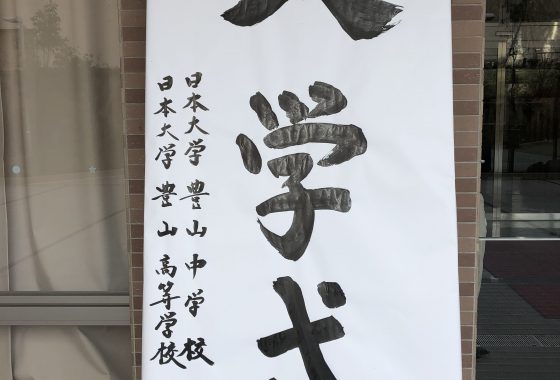 入学式
日本大学 豊山中学校
日本大学 豊山高等学校